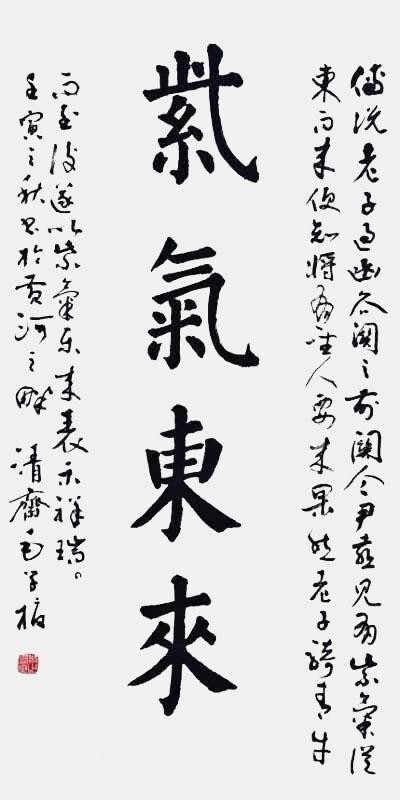 紫氣東來
傳說老子過函谷關之前關令尹喜見有紫氣從
東而來便知將有聖人要來果然老子騎青牛
而至後遂以紫氣東來表示祥瑞。
壬寅之秋書於黃河之畔 清齋毛學